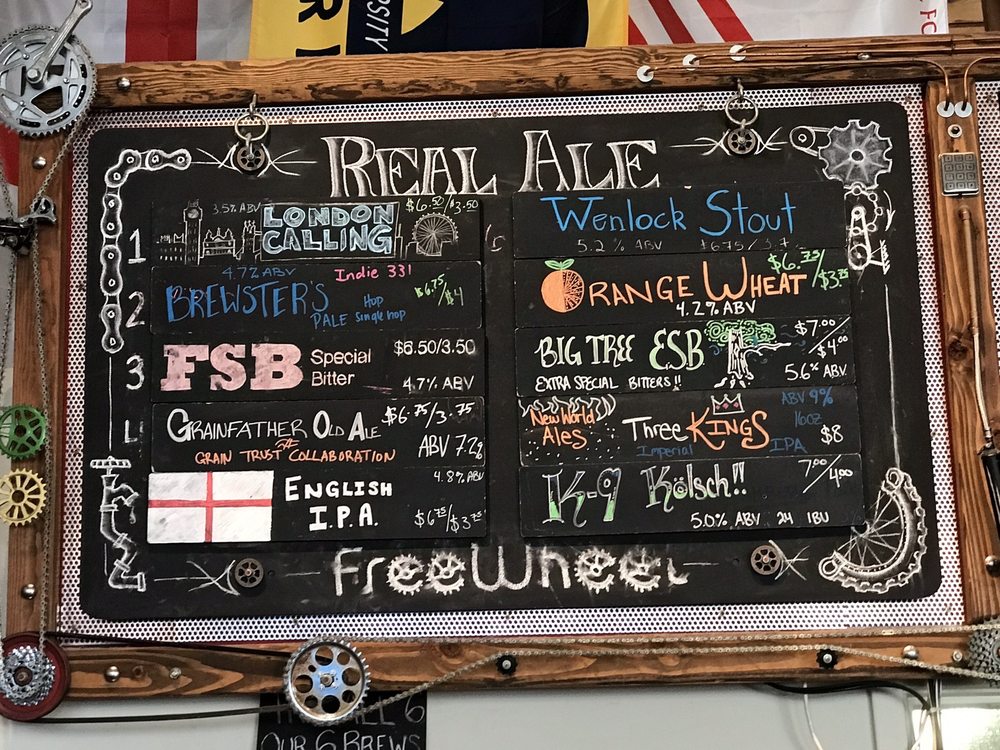 REAL ALE
1
3.5% ABV
LONDON CALLING
$6.50/3.50
2
4.7% ABV
Indie 331
BREWSTER'S
PALE
Hop
Single hop
$6.75/$4
3
FSB
Special
Bitter
$6.50/3.50
4.7% ABV
GRAINFATHER OLD ALE
$6.75/3.75
GRAIN TRUST COLLABORATION
ABV 7.2%
ENGLISH
I.P.A.
4.8% ABV
$6.75/$3.75
Wenlock Stout
5.2% ABV
ORANGE WHEAT
4.2% ABV
BIG TREE ESB
EXTRA SPECIAL BITTERS!!
$7.00/$4.00
5.6% ABV
New World
Ales
Three KINGS
Imperial IPA
ABV 9%
16oz
$8
K-9 Kölsch!!
7.00/4.00
5.0% ABV 24 IBU
FreeWheel
OUR 6 BREWS